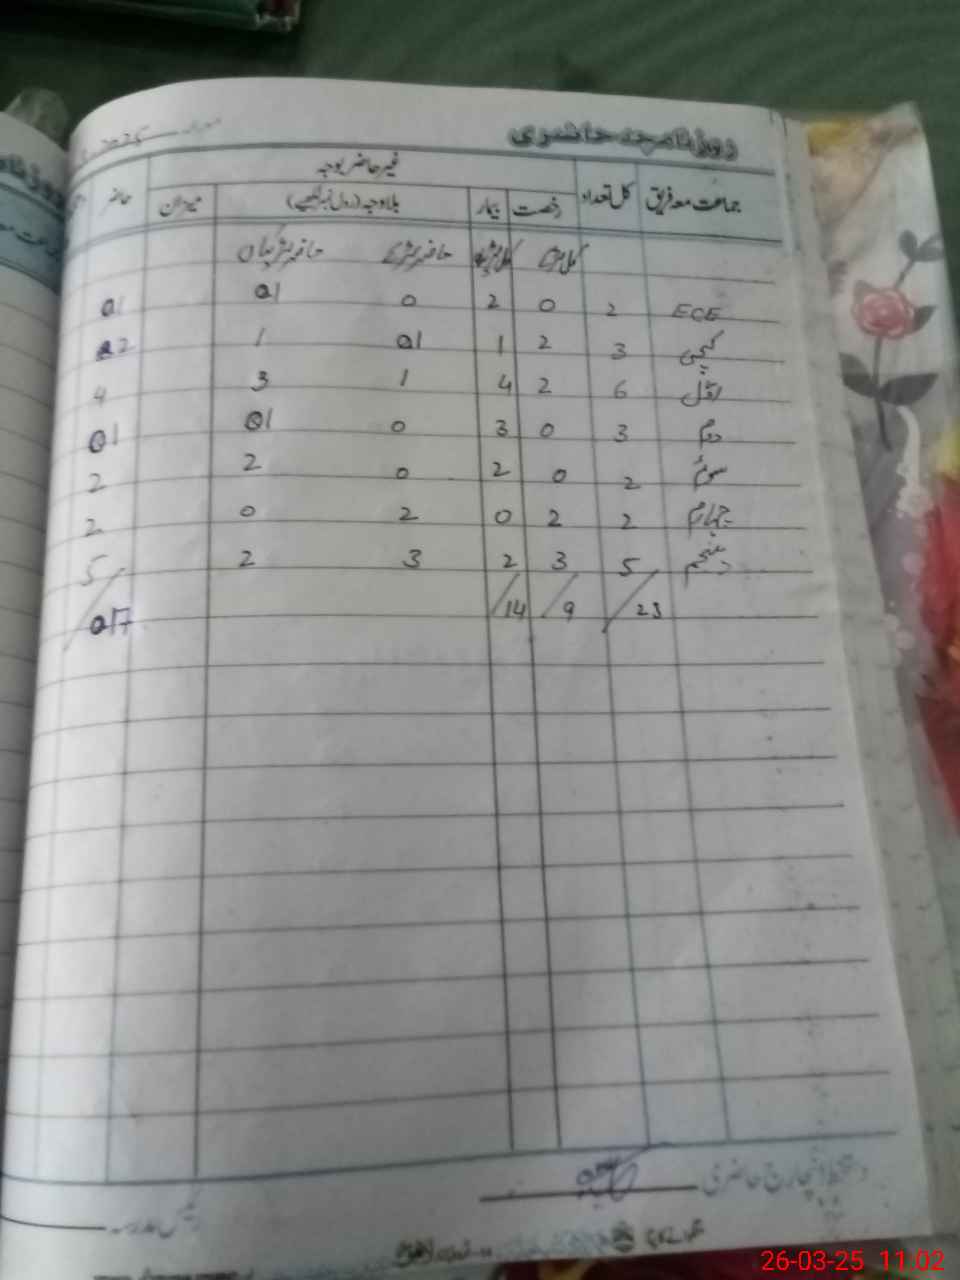 روزنامچہ حاضری
جماعت معہ فریق کل تعداد غیر حاضر بوجہ حاضر
رخصت بیمار بلاوجہ (رول نمبر لکھیے) میزان
ECE 2 0 2 0 01 01
کچی 3 2 1 01 1 02
اول 6 2 4 1 3 4
دوم 3 0 3 0 01 01
سوئم 2 0 2 0 2 2
چہارم 2 2 0 2 0 2
پنجم 5 3 2 3 2 5
23 9 14 017
دستخط انچارج حاضری
رئیس مدرسہ
26-03-25 11:02